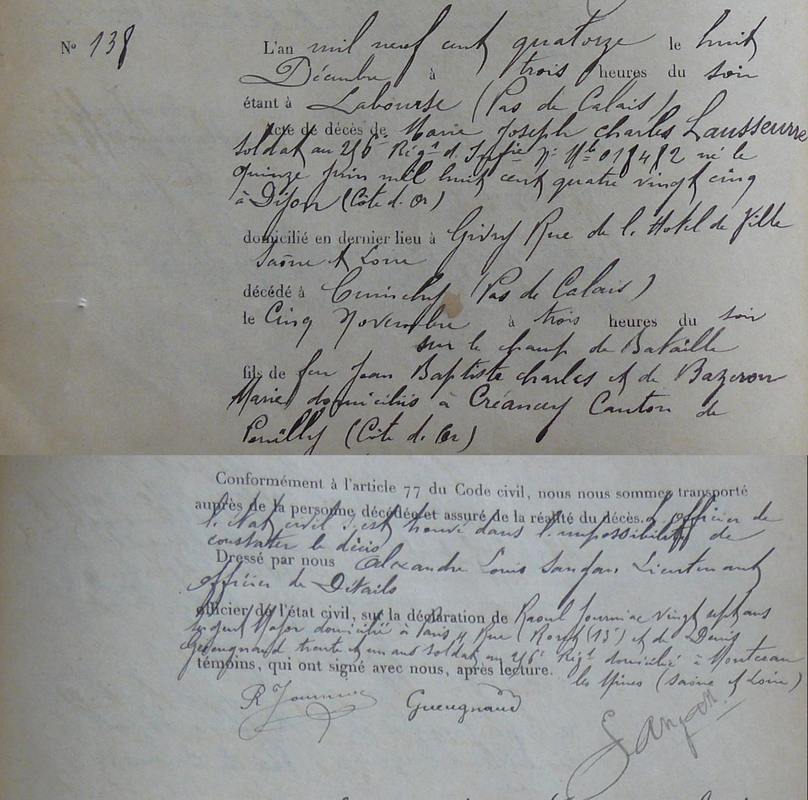 N° 138
L'an mil neuf cent quatorze le huit
Décembre à trois heures du soir
étant à Labourse (Pas de Calais)
Acte de décès de Marie Joseph Charles Lausseurre
soldat au 256e Régt d. Infie N° Mle 018482 né le
quinze juin mil huit cent quatre vingt cinq
à Dijon (Côte d. Or)
domicilié en dernier lieu à Givry Rue de l. Hotel de Ville
Saône et Loire
décédé à Cuinchy (Pas de Calais)
le Cinq Novembre à trois heures du soir
sur le champ de Bataille
fils de feu Jean Baptiste Charles et de Bazeron
Marie domiciliés à Créancey Canton de
Pouilly (Côte d. Or)
Conformément à l'article 77 du Code civil, nous nous sommes transporté
auprès de la personne décédée et assuré de la réalité du décès. L officier de
l. état civil s'est trouvé dans l. impossibilité de
constater le décès
Dressé par nous Alexandre Louis Lieutenant
Officier de Détails
officier de l'état civil, sur la déclaration de Raoul vingt sept ans
sergent Major domicilié à Paris Rue (13e) et de Denis
Gueugnaud trente et un ans soldat au 256e Régt domicilié à Montceau
témoins, qui ont signé avec nous, après lecture. les Mines (Saône et Loire)
R Gueugnaud